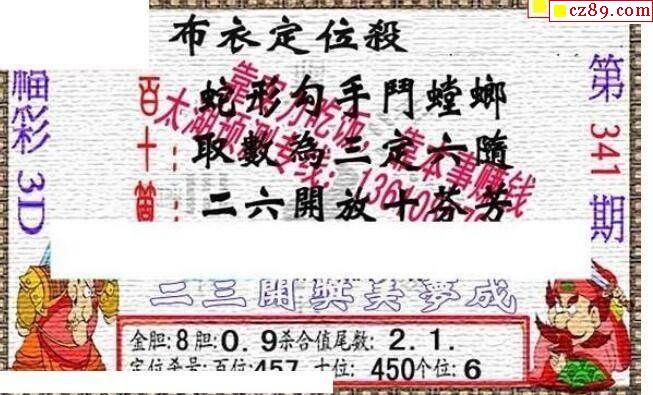 cz89.com
布衣定位殺
福彩3D
第341期
百：蛇形勾手鬥螳螂
十：取數為三定六隨
二六開放十芬芳
靠实力吃饭，靠本事赚钱
太湖预测专线：13610
二三開獎美夢成
金胆:8胆:0.9杀合值尾数:2.1.
定位杀号:百位:457 十位:450个位:6